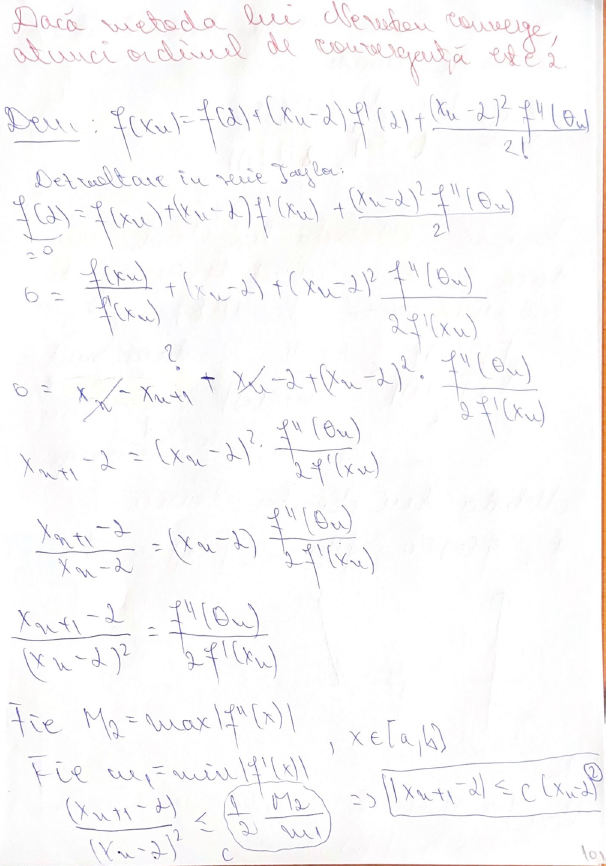 Dacă metoda lui Newton converge,
atunci ordinul de convergență este 2.
Dem: f(xn) = f(α) + (xn-α) f'(α) + (xn-α)² f''(θn) / 2!
Dezvoltare în serie Taylor:
f(α) = f(xn) + (xn-α) f'(xn) + (xn-α)² f''(θn) / 2
= 0
0 = f(xn) / f'(xn) + (xn-α) + (xn-α)² f''(θn) / 2f'(xn)
?
0 = xn - xn+1 + xn - α + (xn-α)² · f''(θn) / 2f'(xn)
xn+1 - α = (xn-α)² · f''(θn) / 2f'(xn)
xn+1 - α / xn - α = (xn-α) f''(θn) / 2f'(xn)
xn+1 - α / (xn-α)² = f''(θn) / 2f'(xn)
Fie M2 = max|f''(x)|
, x∈[a,b]
Fie m1 = min|f'(x)|
(xn+1 - α) / (xn-α)² ≤ 1/2 M2/m1 => |xn+1 - α| ≤ c (xn-α)²
c